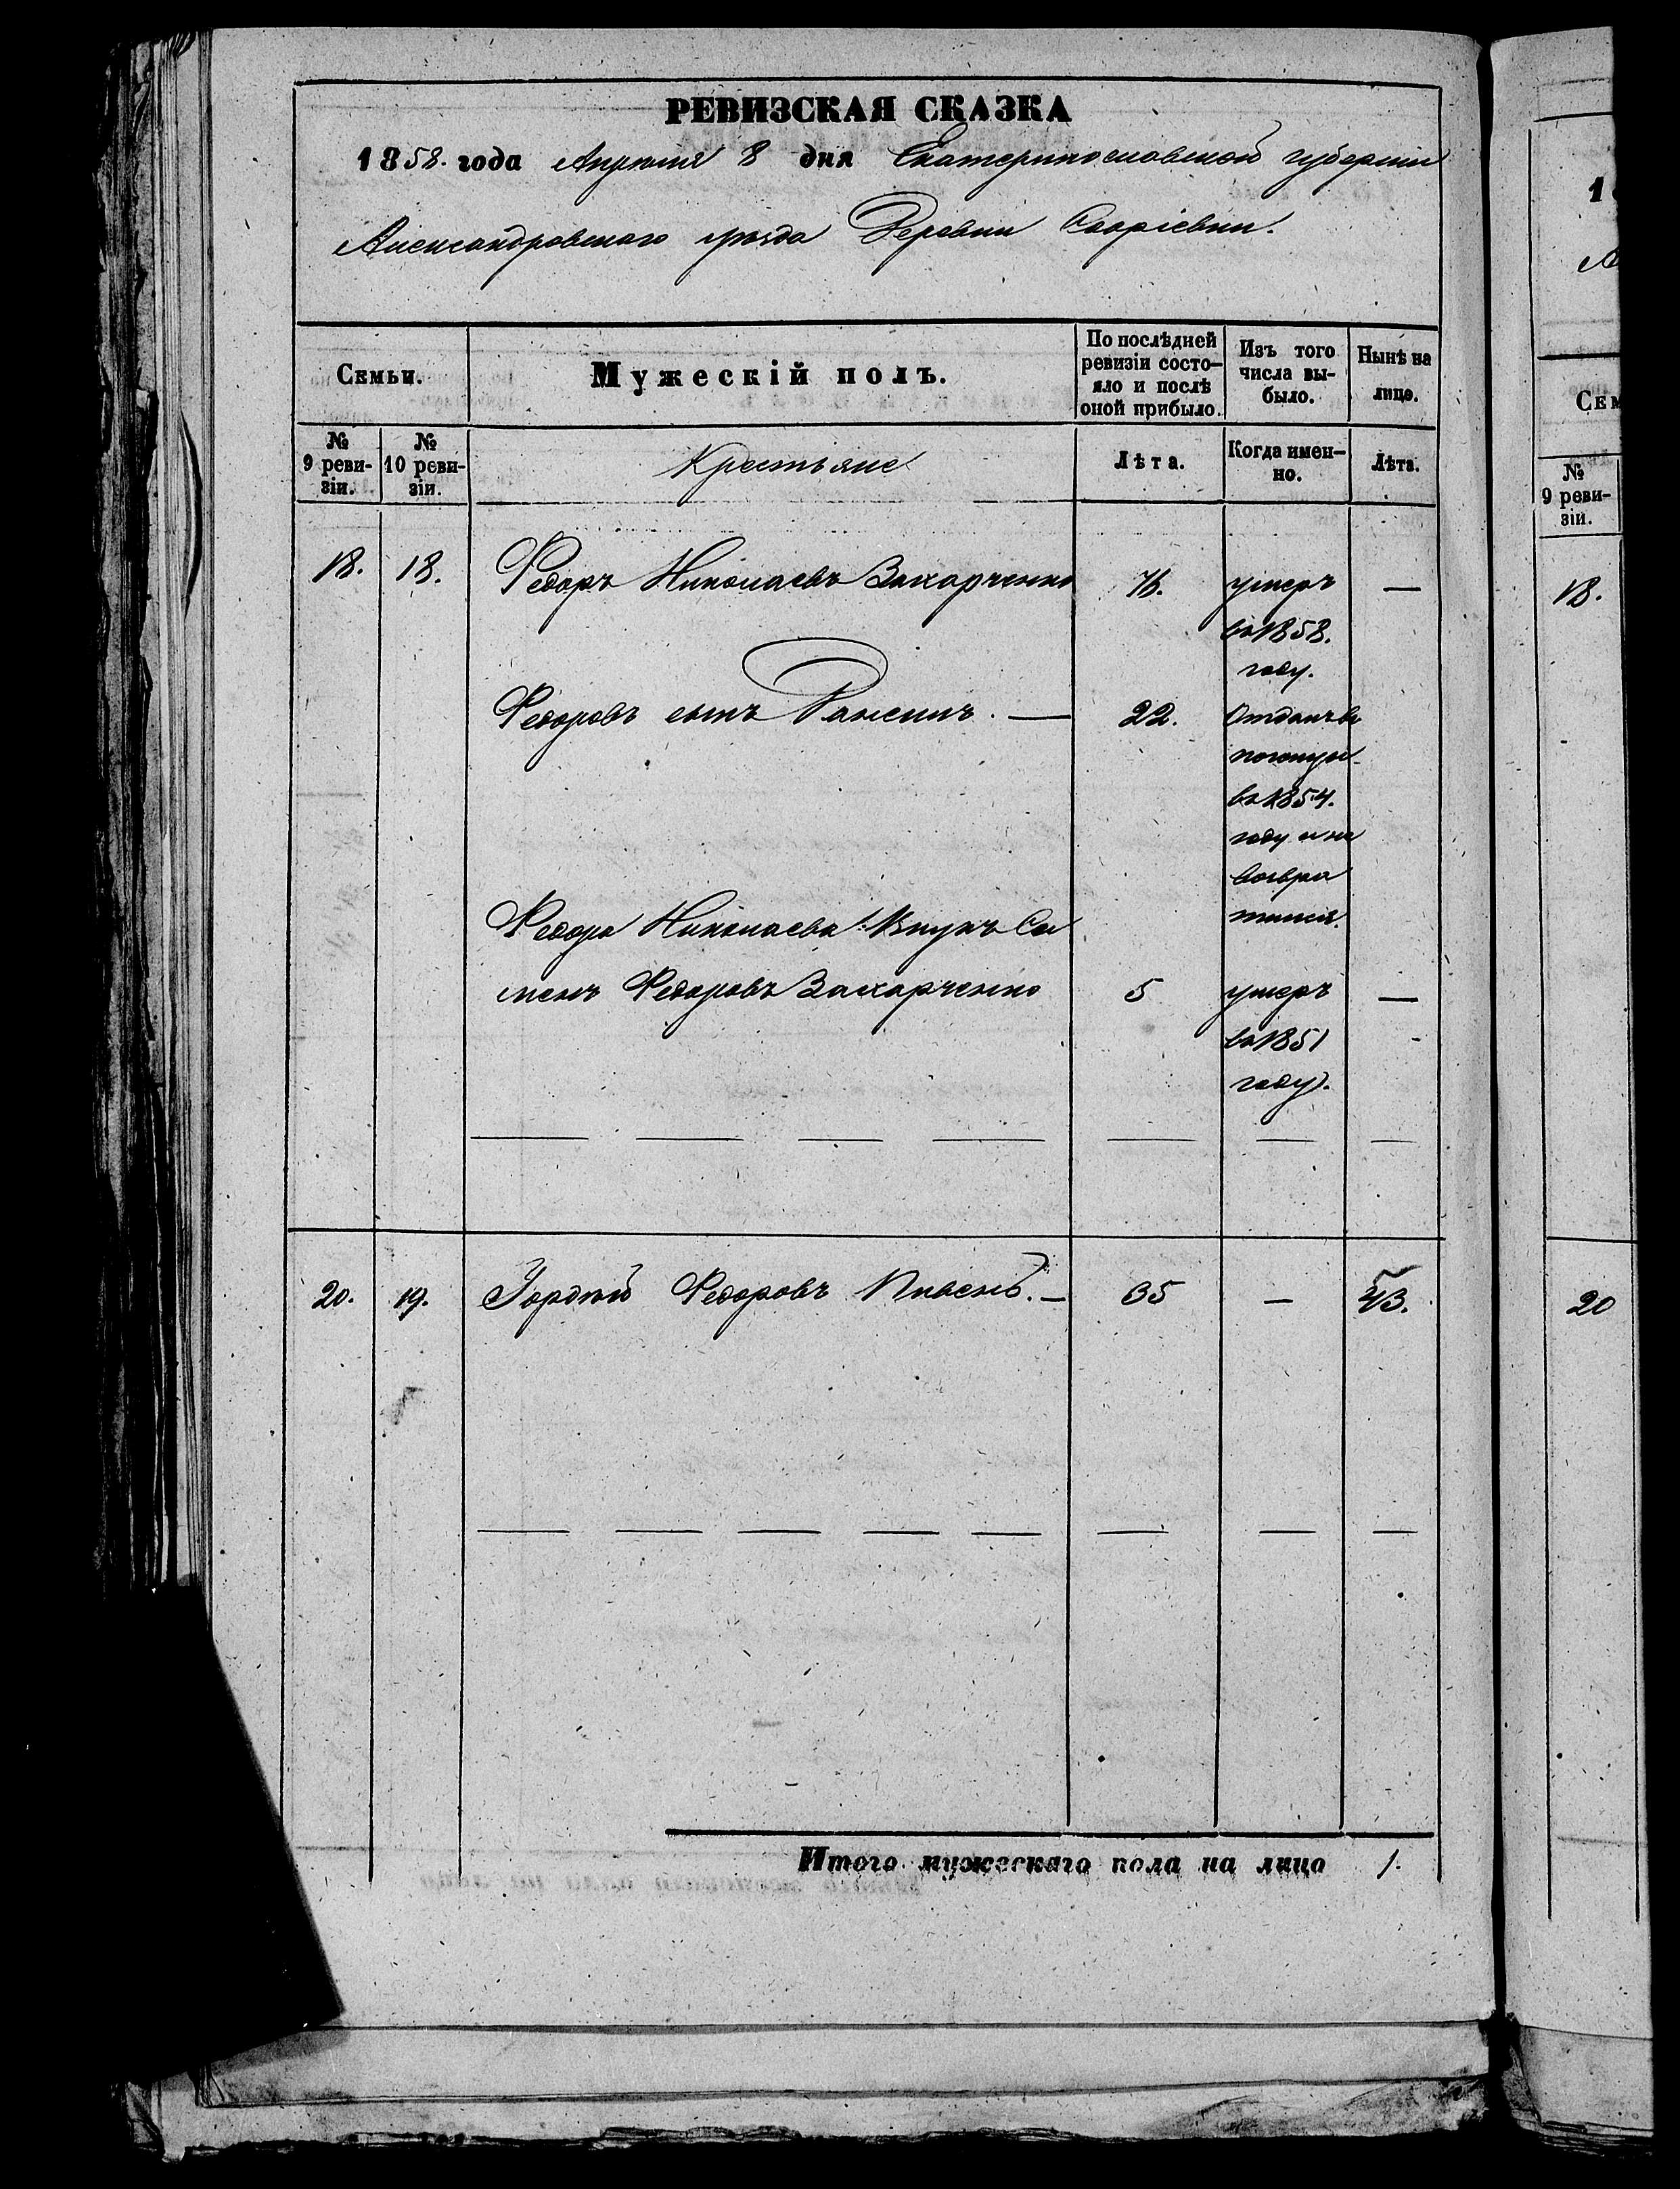 РЕВИЗСКАЯ СКАЗКА
1858. года Апрѣля 8 дня Екатеринославской губерніи
Александровскаго уѣзда Деревни
Семьи.
Мужескій полъ.
По послѣдней ревизіи состо-яло и послѣ оной прибыло.
Изъ того числа вы-было.
Нынѣ на лицо.
№ 9 реви-зіи.
№ 10 реви-зіи.
Крестьяне
Лѣта.
Когда имен-но.
Лѣта.
18. 18. Федоръ Николаевъ Захарченко умеръ —
въ 1858.
году.
Федоровъ сынъ — 22. Отданъ въ
въ 1854.
году и не
возвра
тился.
Федора Николаева Внукъ Се
менъ Федоровъ Захарченко 5 умеръ —
въ 1851
году.
20. 19. Гордѣй Федоровъ Пивень. — 35 — 43.
Итого мужескаго пола на лицо 1.
1
А
Сем
№ 9 реви-зіи.
18.
20